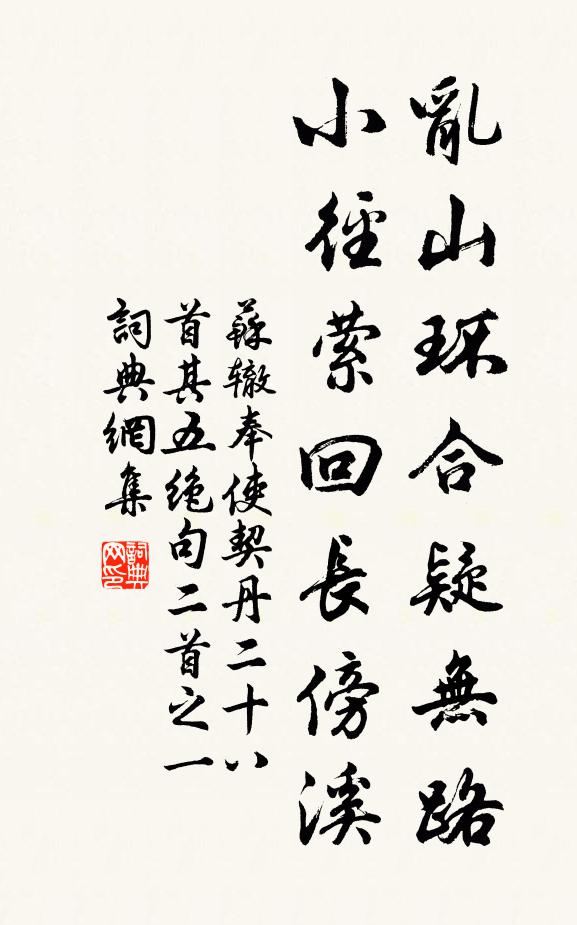 亂山環合疑無路
小徑縈回長傍溪
蘇轍奉使契丹二十八
首其五絶句二首之一
詞典網集
詞典
网印